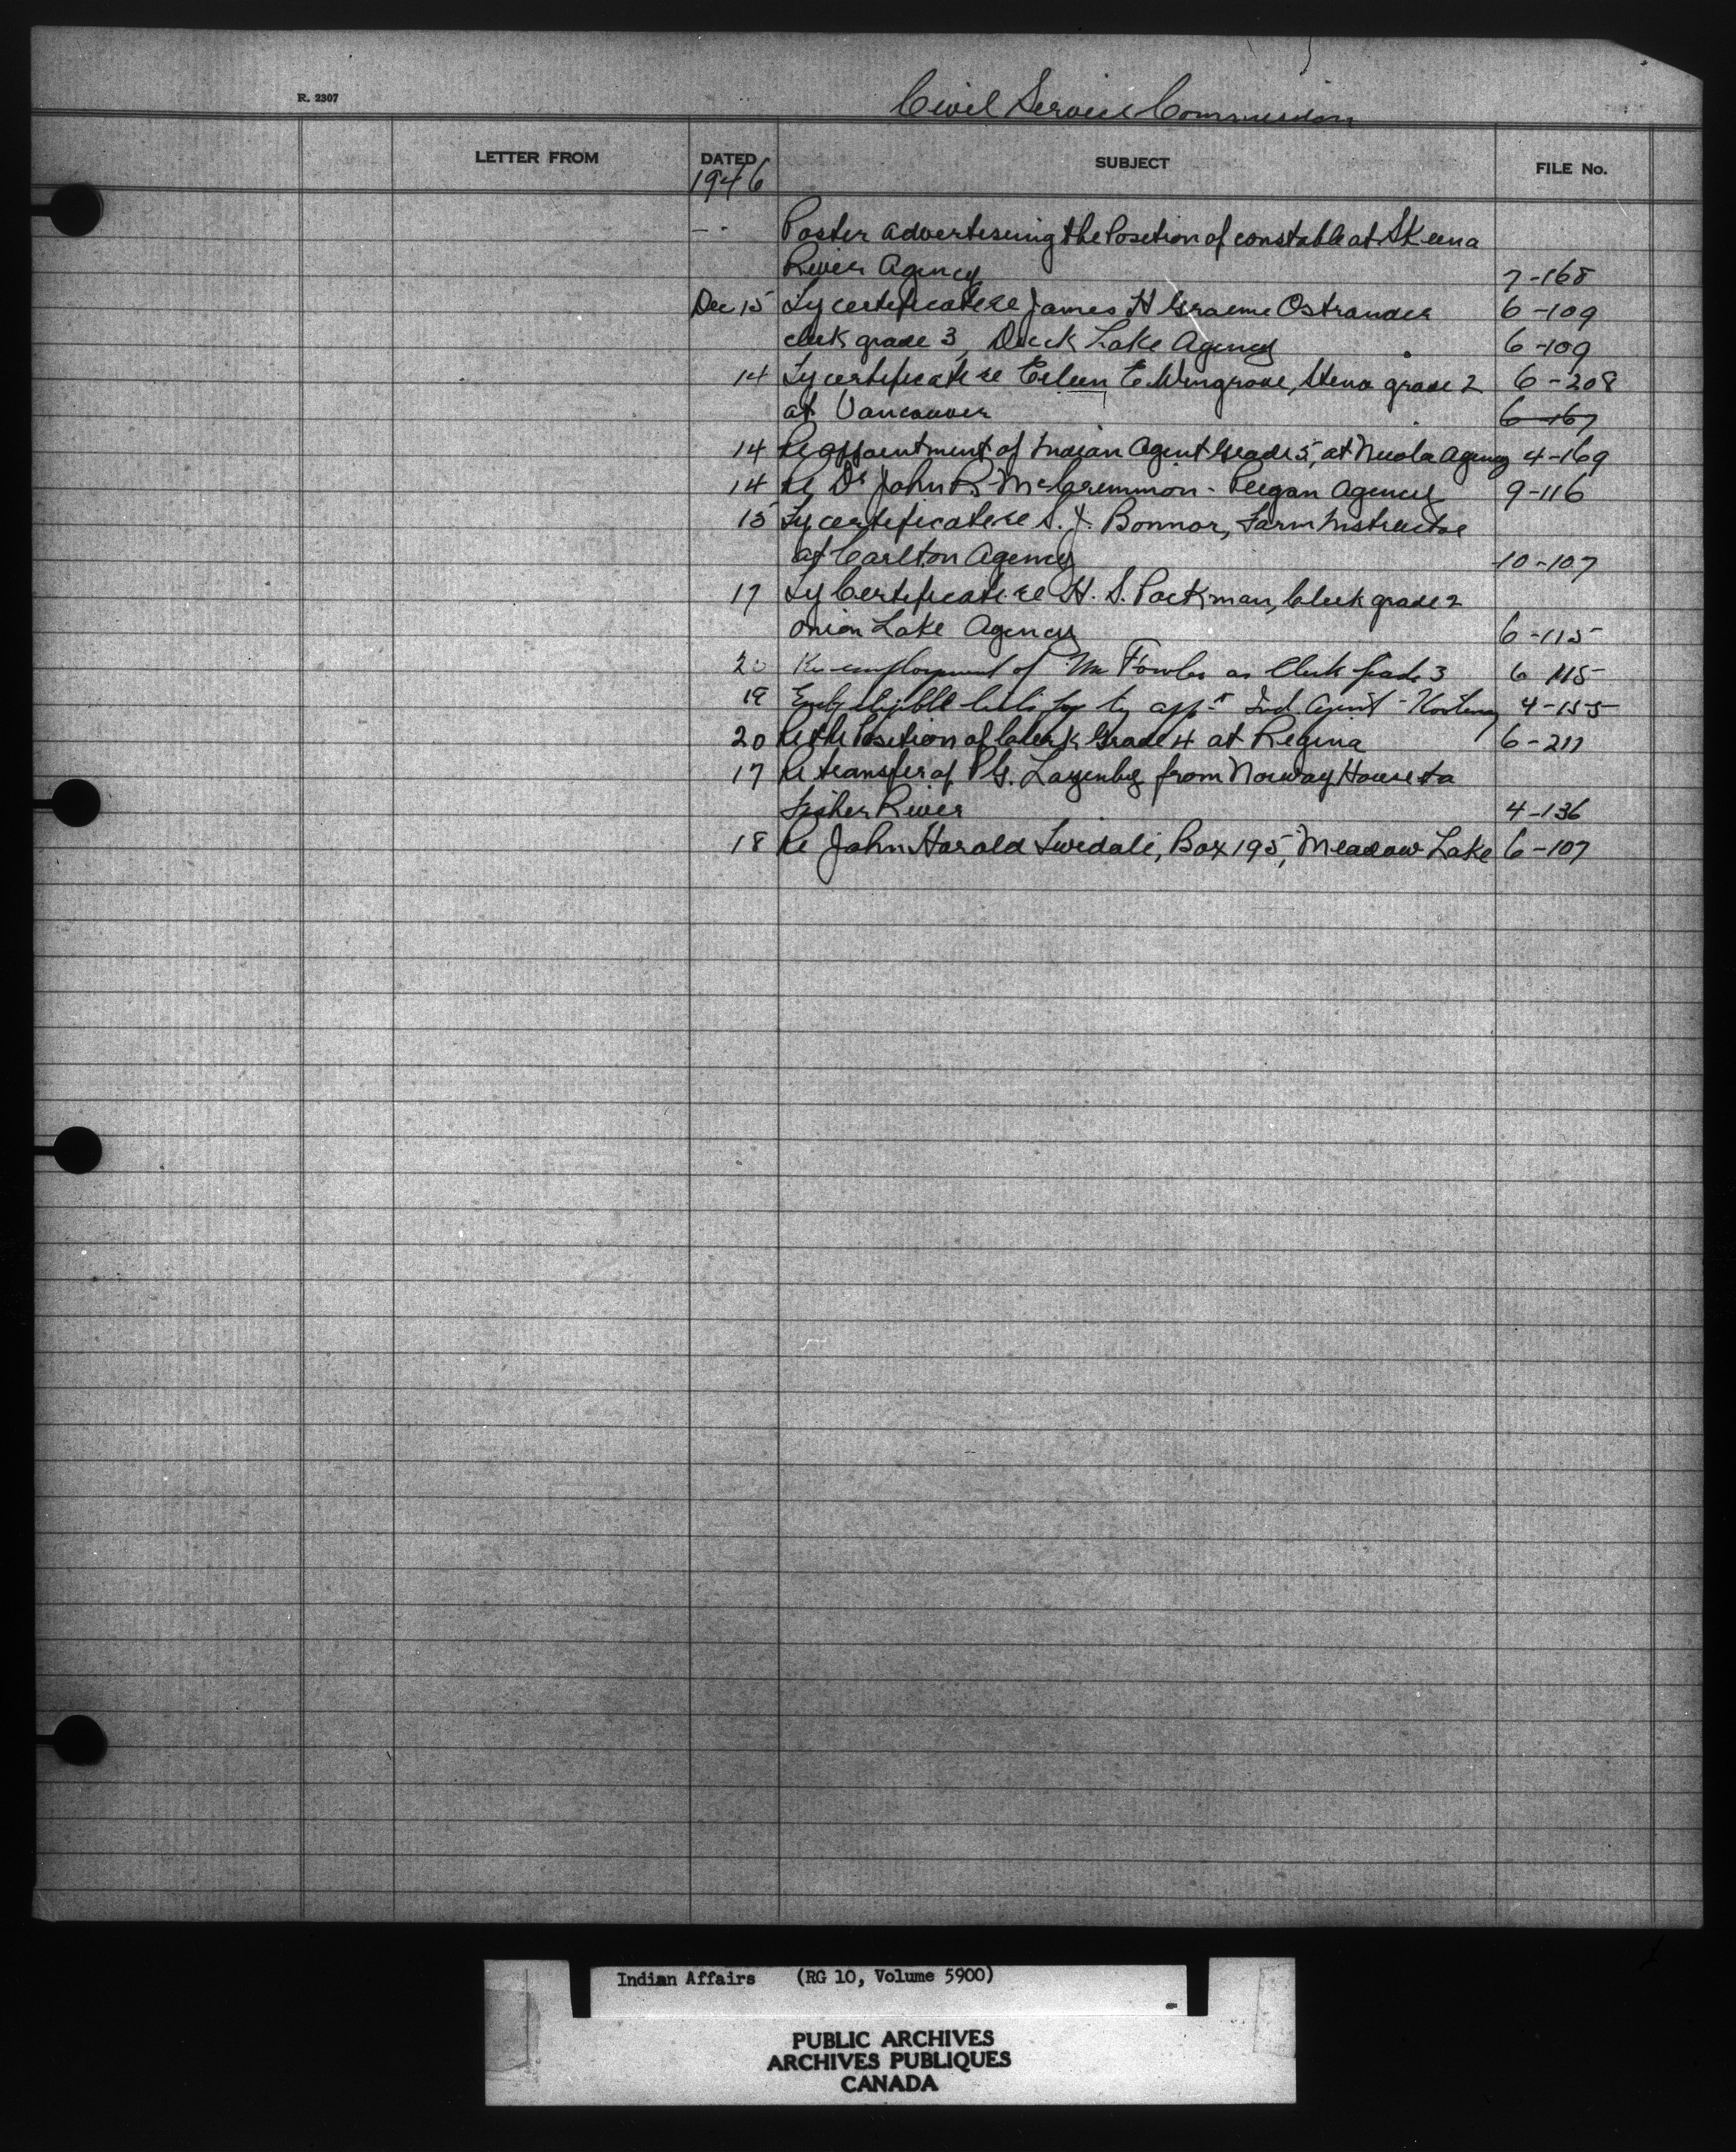 R. 2307
Civil Service Commission
LETTER FROM DATED SUBJECT FILE No.
1946
- - Poster advertising the Position of constable at Skeena
River Agency 7-168
Dec 15 Ty certificate re James H Graeme Ostrander 6-109
clerk grade 3, Duck Lake Agency 6-109
14 Ty certificate re Eileen E. Wingrove, Steno grade 2 6-208
at Vancouver 6-167
14 Re appointment of Indian Agent Grade 5, at Nicola Agency 4-169
14 Re Dr John R. McCrimmon - Peigan Agency 9-116
15 Ty certificate re S. J. Bonnor, Farm Instructor
at Carlton Agency 10-107
17 Ty Certificate re H. S. Packman, Clerk grade 2
Onion Lake Agency 6-115
20 Re-employment of Mr Fowler as Clerk Grade 3 6-115
19 eligible lists for ty app't Ind. Agent - Kootenay 4-155
20 Re the Position of Clerk Grade 4 at Regina 6-211
17 Re transfer of P.G. Lazenby from Norway House to
Fisher River 4-136
18 Re John Harold Twidale, Box 195, Meadow Lake 6-107
Indian Affairs (RG 10, Volume 5900)
PUBLIC ARCHIVES
ARCHIVES PUBLIQUES
CANADA